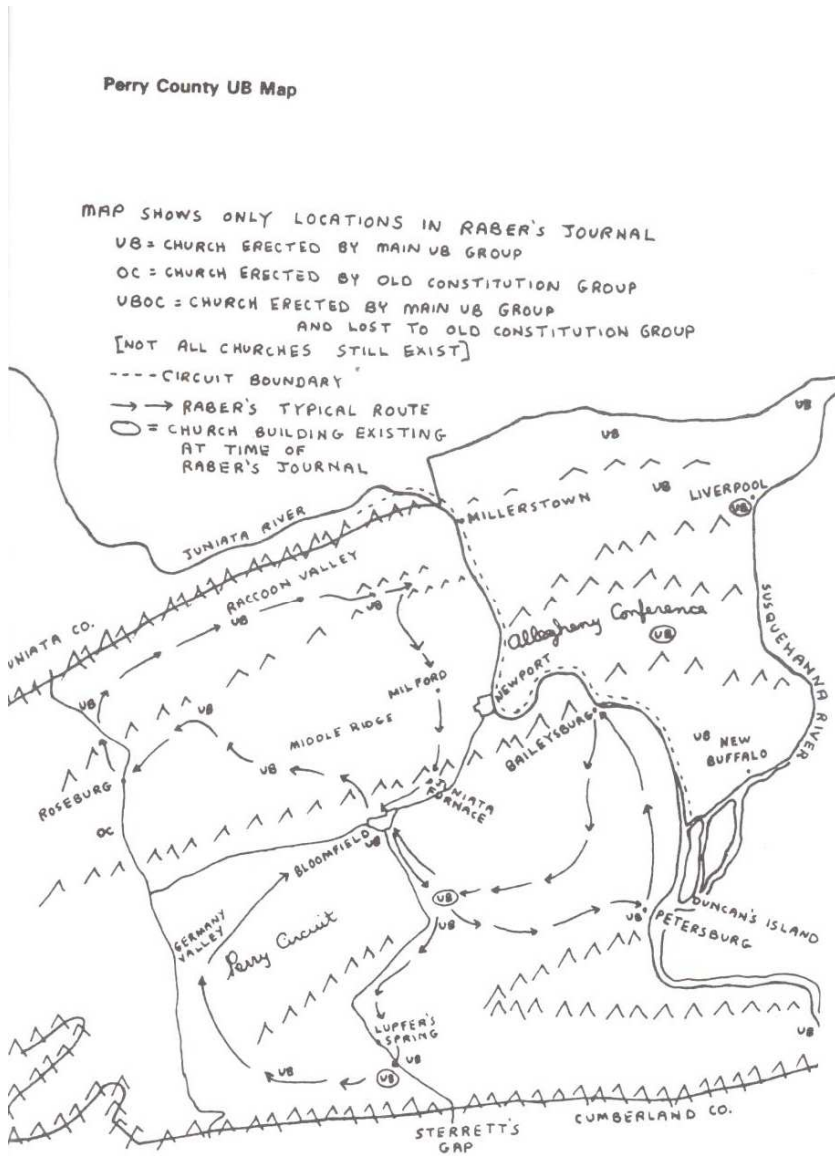 Perry County UB Map
MAP SHOWS ONLY LOCATIONS IN RABER'S JOURNAL
UB = CHURCH ERECTED BY MAIN UB GROUP
OC = CHURCH ERECTED BY OLD CONSTITUTION GROUP
UBOC = CHURCH ERECTED BY MAIN UB GROUP
AND LOST TO OLD CONSTITUTION GROUP
[NOT ALL CHURCHES STILL EXIST]
---- CIRCUIT BOUNDARY
→ → RABER'S TYPICAL ROUTE
= CHURCH BUILDING EXISTING
AT TIME OF
RABER'S JOURNAL
UB
UB
UB
LIVERPOOL
UB
JUNIATA RIVER
MILLERSTOWN
RACCOON VALLEY
UB
UB
UNIATA CO.
Allegheny Conference
UB
SUSQUEHANNA RIVER
NEWPORT
MILFORD
UB
UB
MIDDLE RIDGE
BAILEYSBURG
UB
NEW
BUFFALO
UB
ROSEBURG
JUNIATA
FURNACE
OC
BLOOMFIELD
UB
UB
UB
GERMANY
VALLEY
Perry Circuit
UB
PETERSBURG
DUNCAN'S ISLAND
LUPFER'S
SPRING
UB
UB
UB
UB
CUMBERLAND CO.
STERRETT'S
GAP